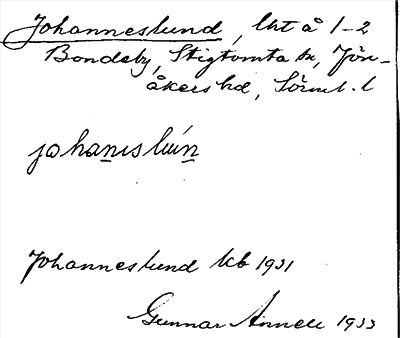 Johanneslund, lht å 1-2
Bondeby, Stigtomta sn, Jön-
åkers hd, Sörml. l
johanıslúın
Johanneslund kb 1931
Gunnar Annell 1933